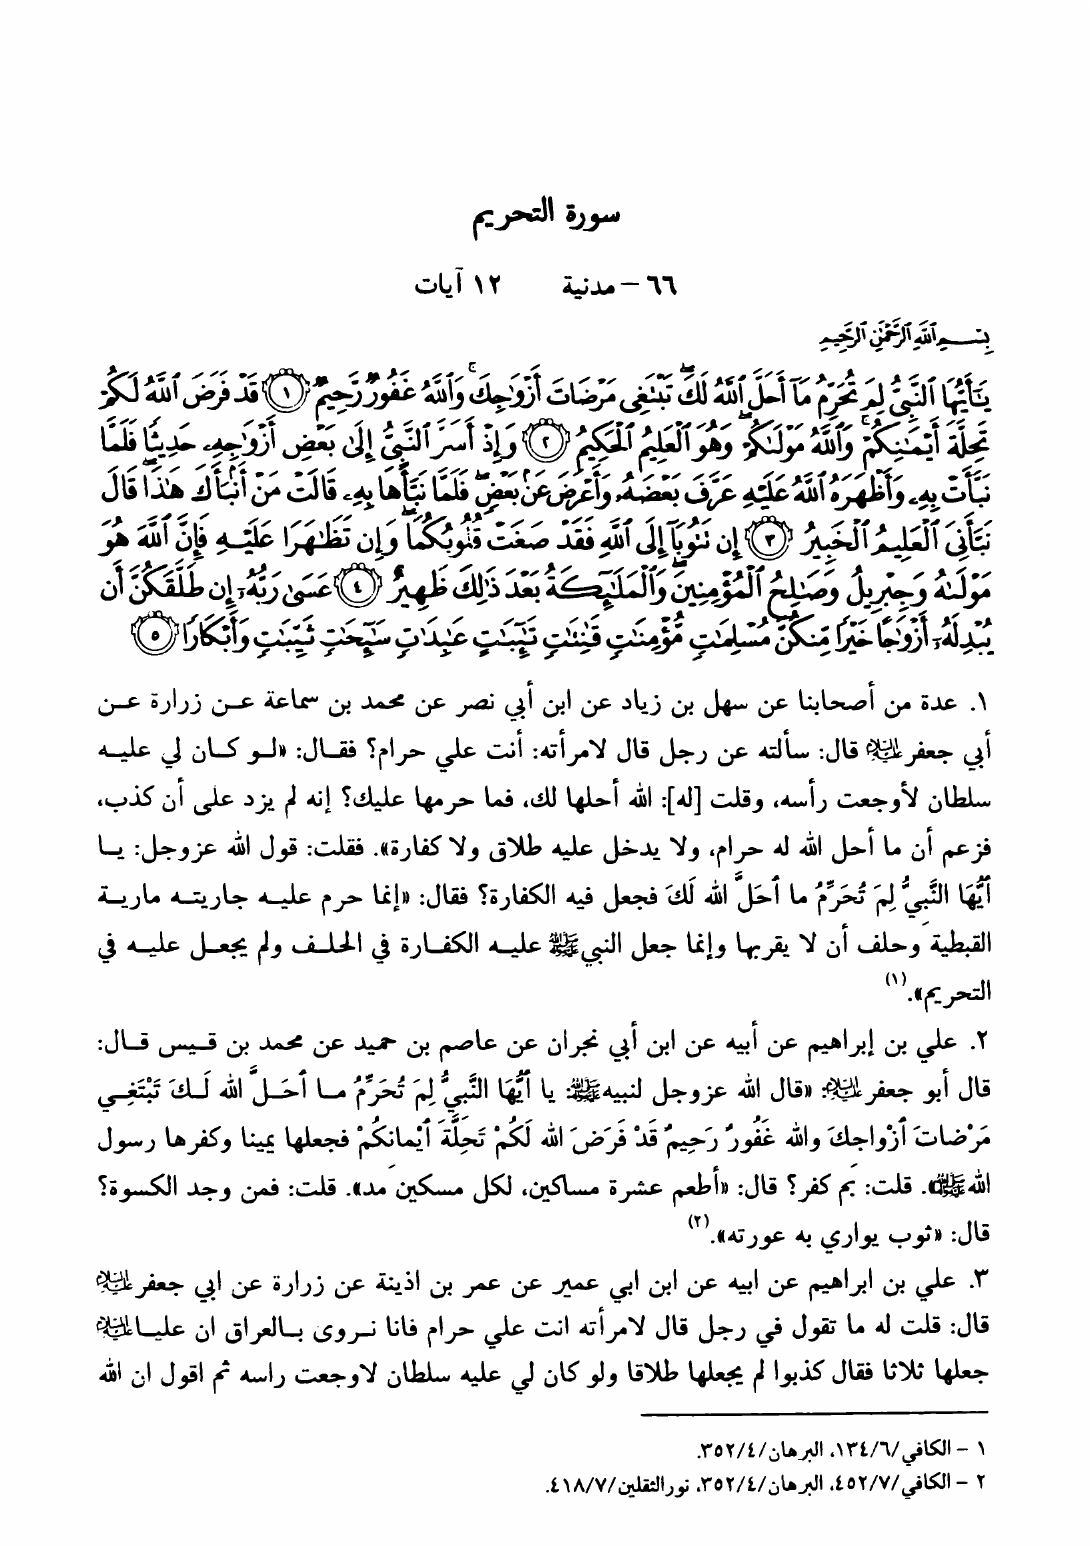 سورة التحريم
٦٦ – مدنية ١٢ آيات
بِسْمِ ٱللَّهِ ٱلرَّحْمَٰنِ ٱلرَّحِيمِ
يَٰٓأَيُّهَا ٱلنَّبِيُّ لِمَ تُحَرِّمُ مَآ أَحَلَّ ٱللَّهُ لَكَ ۖ تَبْتَغِى مَرْضَاتَ أَزْوَٰجِكَ ۚ وَٱللَّهُ غَفُورٌ رَّحِيمٌ ١ قَدْ فَرَضَ ٱللَّهُ لَكُمْ
تَحِلَّةَ أَيْمَٰنِكُمْ ۚ وَٱللَّهُ مَوْلَىٰكُمْ ۖ وَهُوَ ٱلْعَلِيمُ ٱلْحَكِيمُ ٢ وَإِذْ أَسَرَّ ٱلنَّبِيُّ إِلَىٰ بَعْضِ أَزْوَٰجِهِۦ حَدِيثًا فَلَمَّا
نَبَّأَتْ بِهِۦ وَأَظْهَرَهُ ٱللَّهُ عَلَيْهِ عَرَّفَ بَعْضَهُۥ وَأَعْرَضَ عَنۢ بَعْضٍ ۖ فَلَمَّا نَبَّأَهَا بِهِۦ قَالَتْ مَنْ أَنۢبَأَكَ هَٰذَا ۖ قَالَ
نَبَّأَنِىَ ٱلْعَلِيمُ ٱلْخَبِيرُ ٣ إِن تَتُوبَآ إِلَى ٱللَّهِ فَقَدْ صَغَتْ قُلُوبُكُمَا ۖ وَإِن تَظَٰهَرَا عَلَيْهِ فَإِنَّ ٱللَّهَ هُوَ
مَوْلَىٰهُ وَجِبْرِيلُ وَصَٰلِحُ ٱلْمُؤْمِنِينَ ۖ وَٱلْمَلَٰٓئِكَةُ بَعْدَ ذَٰلِكَ ظَهِيرٌ ٤ عَسَىٰ رَبُّهُۥٓ إِن طَلَّقَكُنَّ أَن
يُبْدِلَهُۥٓ أَزْوَٰجًا خَيْرًا مِّنكُنَّ مُسْلِمَٰتٍ مُّؤْمِنَٰتٍ قَٰنِتَٰتٍ تَٰٓئِبَٰتٍ عَٰبِدَٰتٍ سَٰٓئِحَٰتٍ ثَيِّبَٰتٍ وَأَبْكَارًا ٥
١. عدة من أصحابنا عن سهل بن زياد عن ابن أبي نصر عن محمد بن سماعة عـن زرارة عـن
أبي جعفر عليه السلام قال: سألته عن رجل قال لامرأته: أنت علي حرام؟ فقـال: «لـو كـان لي عليـه
سلطان لأوجعت رأسه، وقلت [له]: الله أحلها لك، فما حرمها عليك؟ إنه لم يزد على أن كذب،
فزعم أن ما أحل الله له حرام، ولا يدخل عليه طلاق ولا كفارة». فقلت: قول الله عزوجل: يـا
أَيُّهَا النَّبِيُّ لِمَ تُحَرِّمُ ما أَحَلَّ الله لَكَ فجعل فيه الكفارة؟ فقال: «إنما حرم عليـه جاريتـه ماريـة
القبطية وحلف أن لا يقربها وإنما جعل النبي ﷺ عليـه الكفـارة في الحلـف ولم يجعـل عليـه في
التحريم».(١)
٢. علي بن إبراهيم عن أبيه عن ابن أبي نجران عن عاصم بن حميد عن محمد بن قـيس قـال:
قال أبو جعفر عليه السلام: «قال الله عزوجل لنبيه ﷺ: يا أَيُّهَا النَّبِيُّ لِمَ تُحَرِّمُ مـا أَحَـلَّ الله لَـكَ تَبْتَغِـي
مَرْضاتَ أَزْواجِكَ والله غَفُورٌ رَحِيمٌ قَدْ فَرَضَ الله لَكُمْ تَحِلَّةَ أَيْمانِكُمْ فجعلها يمينا وكفرها رسول
الله ﷺ». قلت: بم كفر؟ قال: «أطعم عشرة مساكين، لكل مسكين مد». قلت: فمن وجد الكسوة؟
قال: «ثوب يواري به عورته».(٢)
٣. علي بن ابراهيم عن ابيه عن ابن ابي عمير عن عمر بن اذينة عن زرارة عن ابي جعفر عليه السلام
قال: قلت له ما تقول في رجل قال لامرأته انت علي حرام فانا نـروى بـالعراق ان عليـا عليه السلام
جعلها ثلاثا فقال كذبوا لم يجعلها طلاقا ولو كان لي عليه سلطان لاوجعت راسه ثم اقول ان الله
١ – الكافي/٦/١٣٤، البرهان/٤/٣٥٢.
٢ – الكافي/٧/٤٥٢، البرهان/٤/٣٥٢، نورالثقلين/٧/٤١٨.